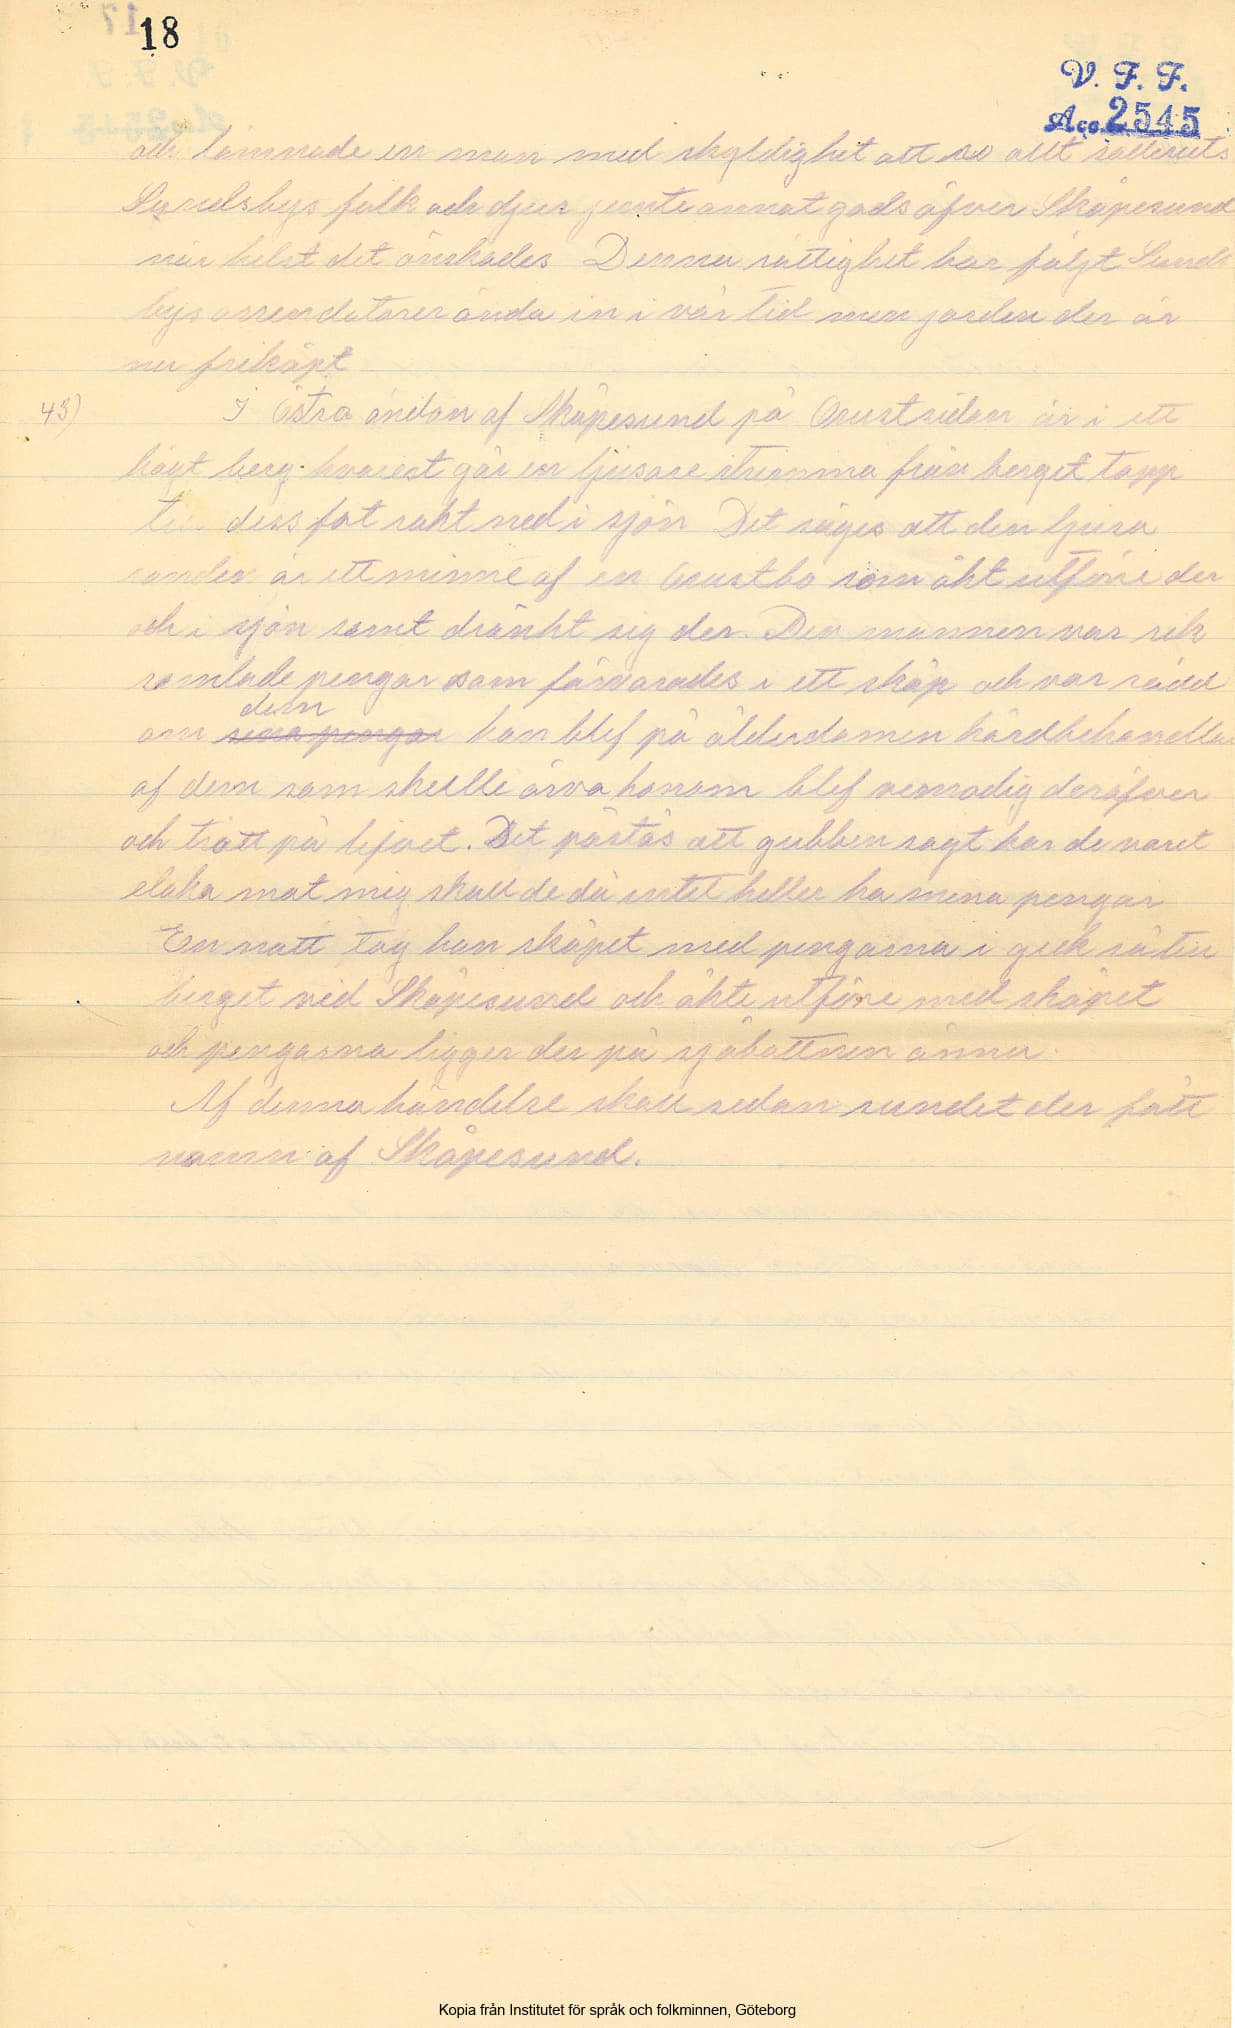 18
V. F. F.
Acc. 2545
och lämnade en man med skyldighet att ro allt
Sundsbys folk och djur jemte annat gods öfver Skåpesund
när helst det önskades Denna rättighet har följt Sunds
bys arrendatorer ända in i vår tid men jorden der är
nu friköpt
43) I Östra ändan af Skåpesund på Orustsidan är i ett
högt berg hvarest går en ljusare strimma från berget topp
till dess fot rakt ned i sjön Det säges att den ljusa
randen är ett minne af en Orustbo som åkt utföre der
och i sjön samt dränkt sig der. Den mannen var rik
samlade pengar som förvarades i ett skåp och var rädd
dem
om sina pengar han blef på ålderdomen hårdbehandlad
af dem som skulle ärva honom blef vemodig deröfver
och trött på lifvet. Det påstås att gubben sagt har de varet
elaka mot mig skall de då intet heller ha mina pengar
En natt tog han skåpet med pengarna i gick så till
berget vid Skåpesund och åkte utföre med skåpet
och pengarna ligger der på sjöbottnen ännu.
Af denna händelse skall sedan sundet der fått
namn af Skåpesund.
Kopia från Institutet för språk och folkminnen, Göteborg